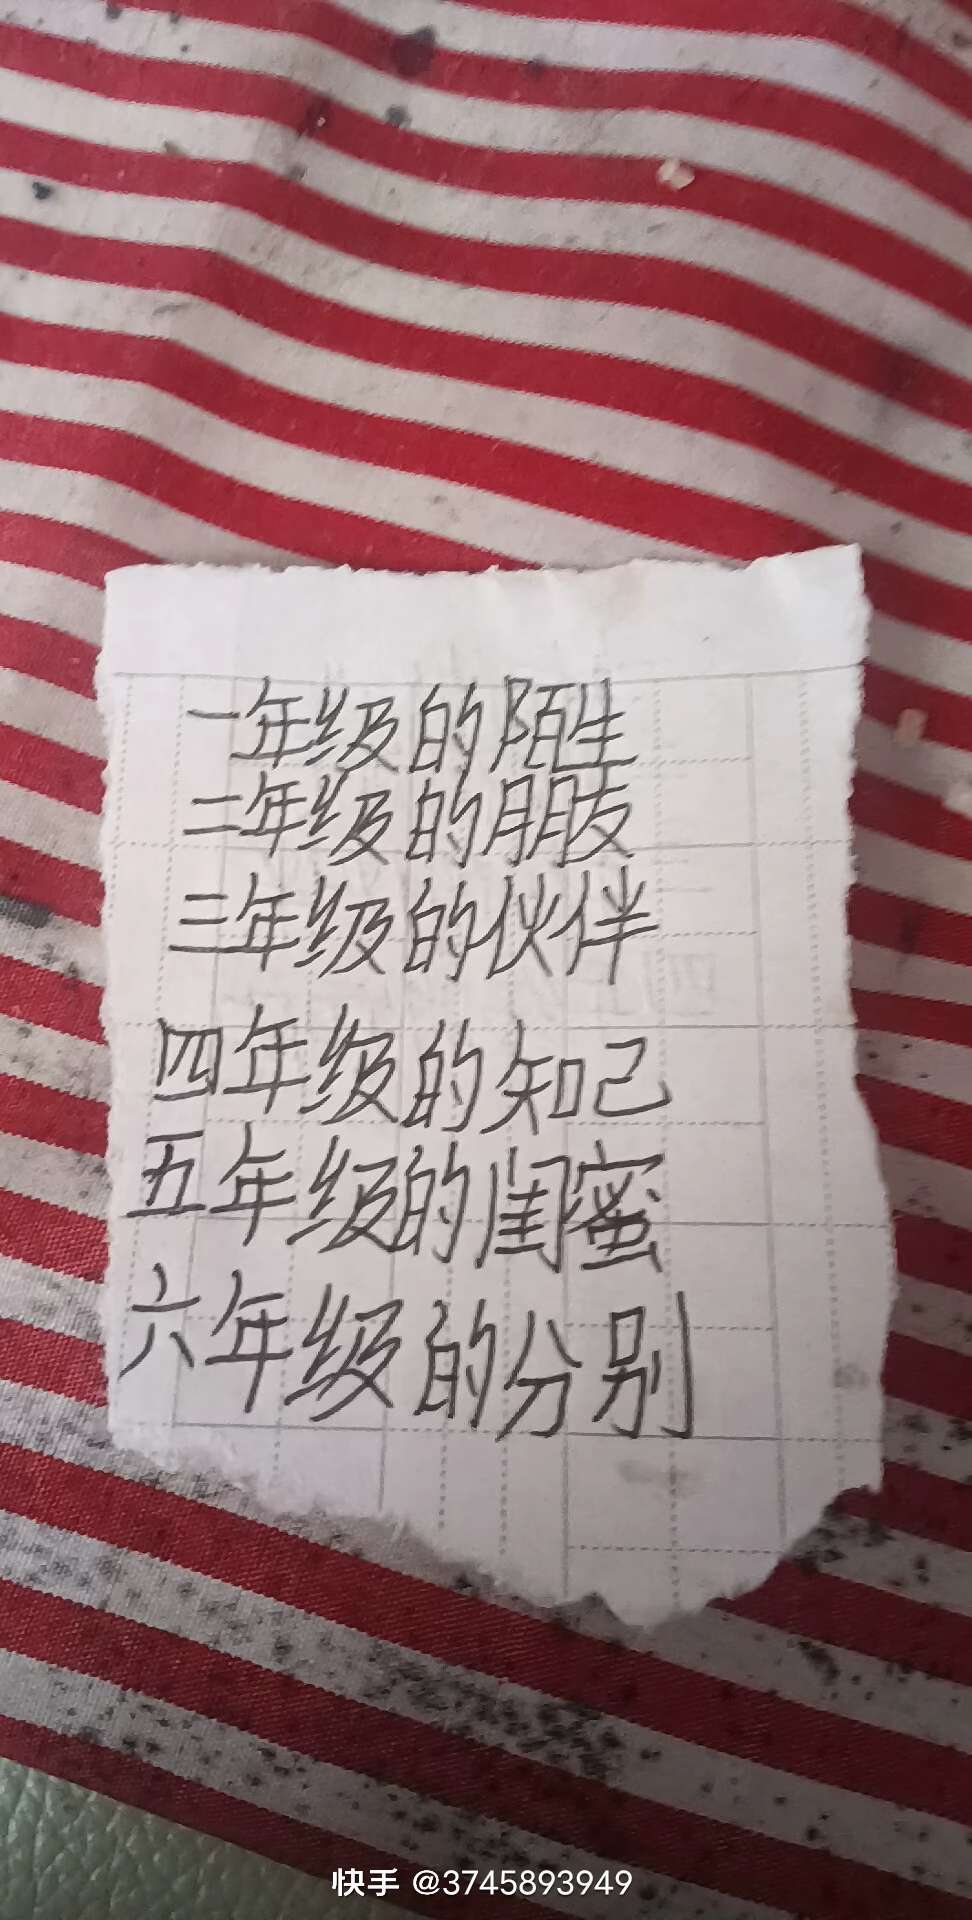 一年级的陌生
二年级的朋友
三年级的伙伴
四年级的知己
五年级的闺蜜
六年级的分别
快手 @3745893949